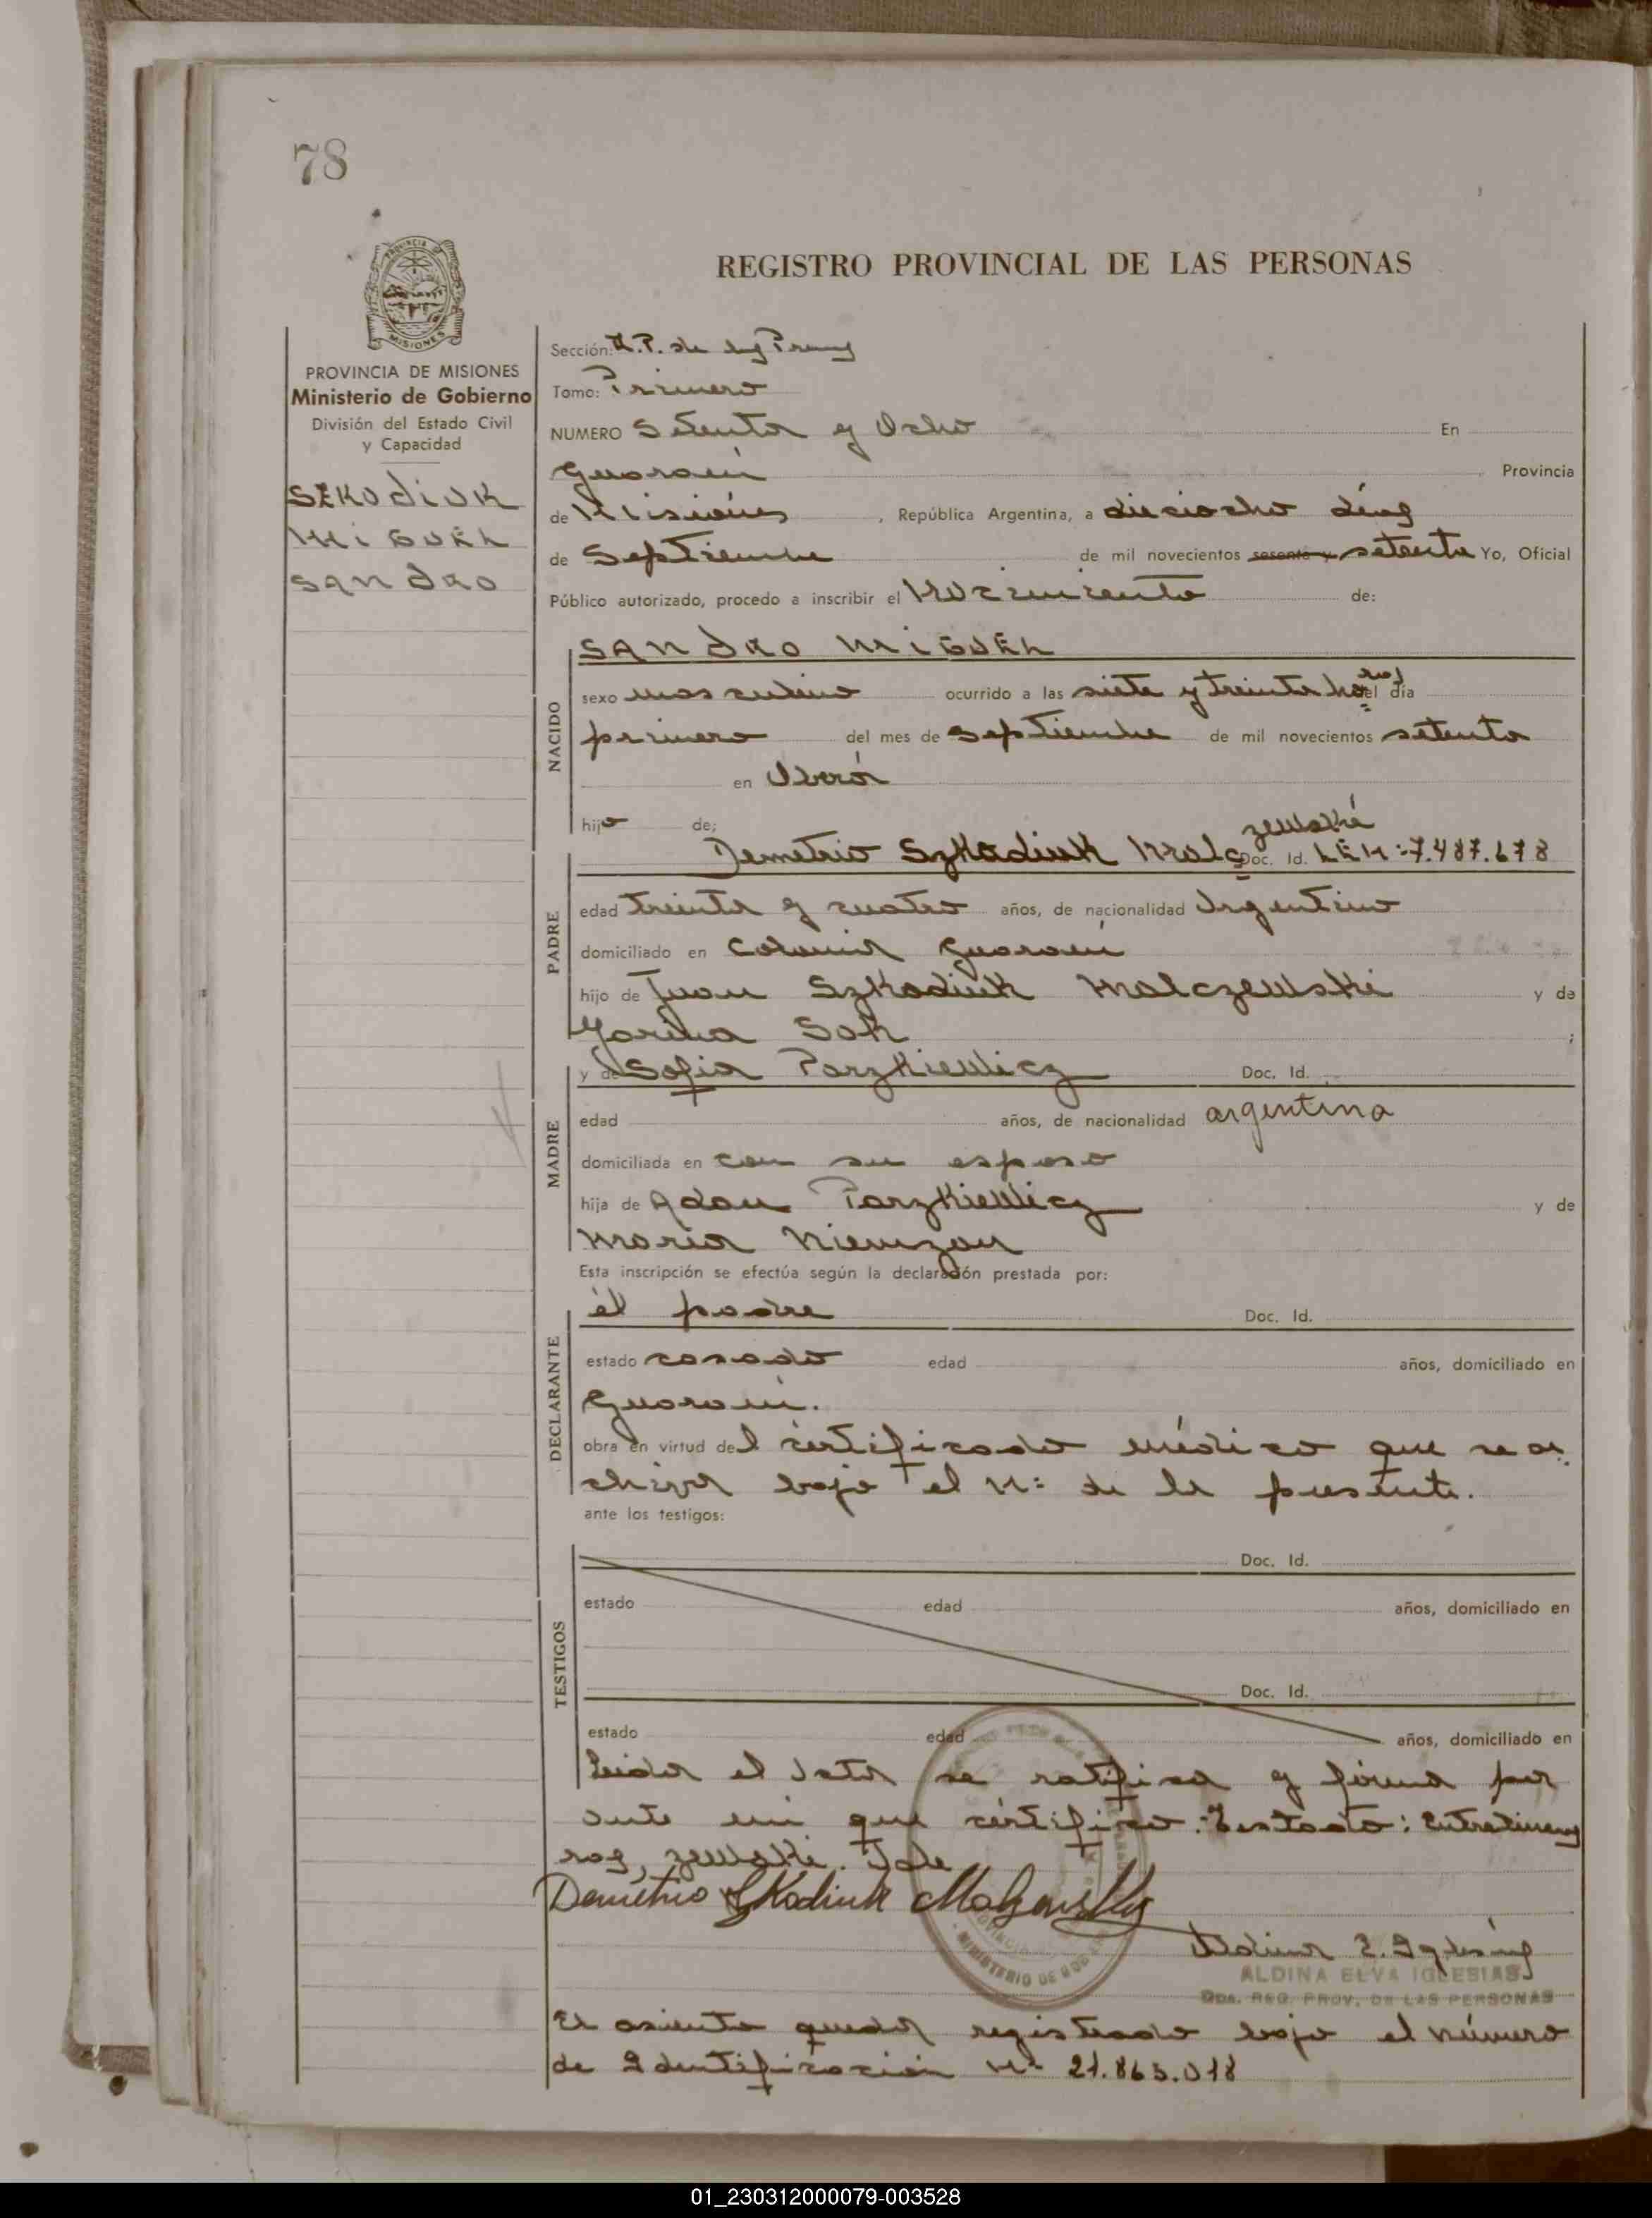 78
REGISTRO PROVINCIAL DE LAS PERSONAS
PROVINCIA DE MISIONES
Ministerio de Gobierno
División del Estado Civil
y Capacidad
SZKODIUK
MIGUEL
SANDRO
Sección: R.P. de las
Tomo: Primero
NUMERO Setenta y Ocho En
Guaraní Provincia
de Misiones, República Argentina, a dieciocho días
de Septiembre de mil novecientos sesenta y setenta Yo, Oficial
Público autorizado, procedo a inscribir el Nacimiento de:
NACIDO
SANDRO MIGUEL
sexo masculino ocurrido a las siete y treinta horas el día
primero del mes de Septiembre de mil novecientos setenta
en Oberá
hijo de;
zewski
Demetrio Szkodiuk Malc Doc. Id. L.E.N: 7.487.678
PADRE
edad treinta y cuatro años, de nacionalidad Argentino
domiciliado en Colonia Guaraní
hijo de Juan Szkodiuk Malczewski y de
Sok ;
y de Sofia Parzkiewicz Doc. Id.
MADRE
edad años, de nacionalidad argentina
domiciliada en con su esposo
hija de Adan Parzkiewicz y de
Maria
Esta inscripción se efectúa según la declaración prestada por:
DECLARANTE
el padre Doc. Id.
estado casado edad años, domiciliado en
Guaraní.
obra en virtud del certificado médico que se ar
chiva bajo el Nº de la presente.
ante los testigos:
TESTIGOS
Doc. Id.
estado edad años, domiciliado en
Doc. Id.
estado edad años, domiciliado en
Leida el Acta se ratifica y firma por
ante mi que certifico: Testado: Entrelineas
ras, zewski. Vale
Demetrio Szkodiuk
Aldina E. Iglesias
ALDINA ELVA IGLESIAS
REG. PROV. DE LAS PERSONAS
MINISTERIO DE GOB
El asiento queda registrado bajo el número
de Identificación Nº 21.863.018
01_230312000079-003528